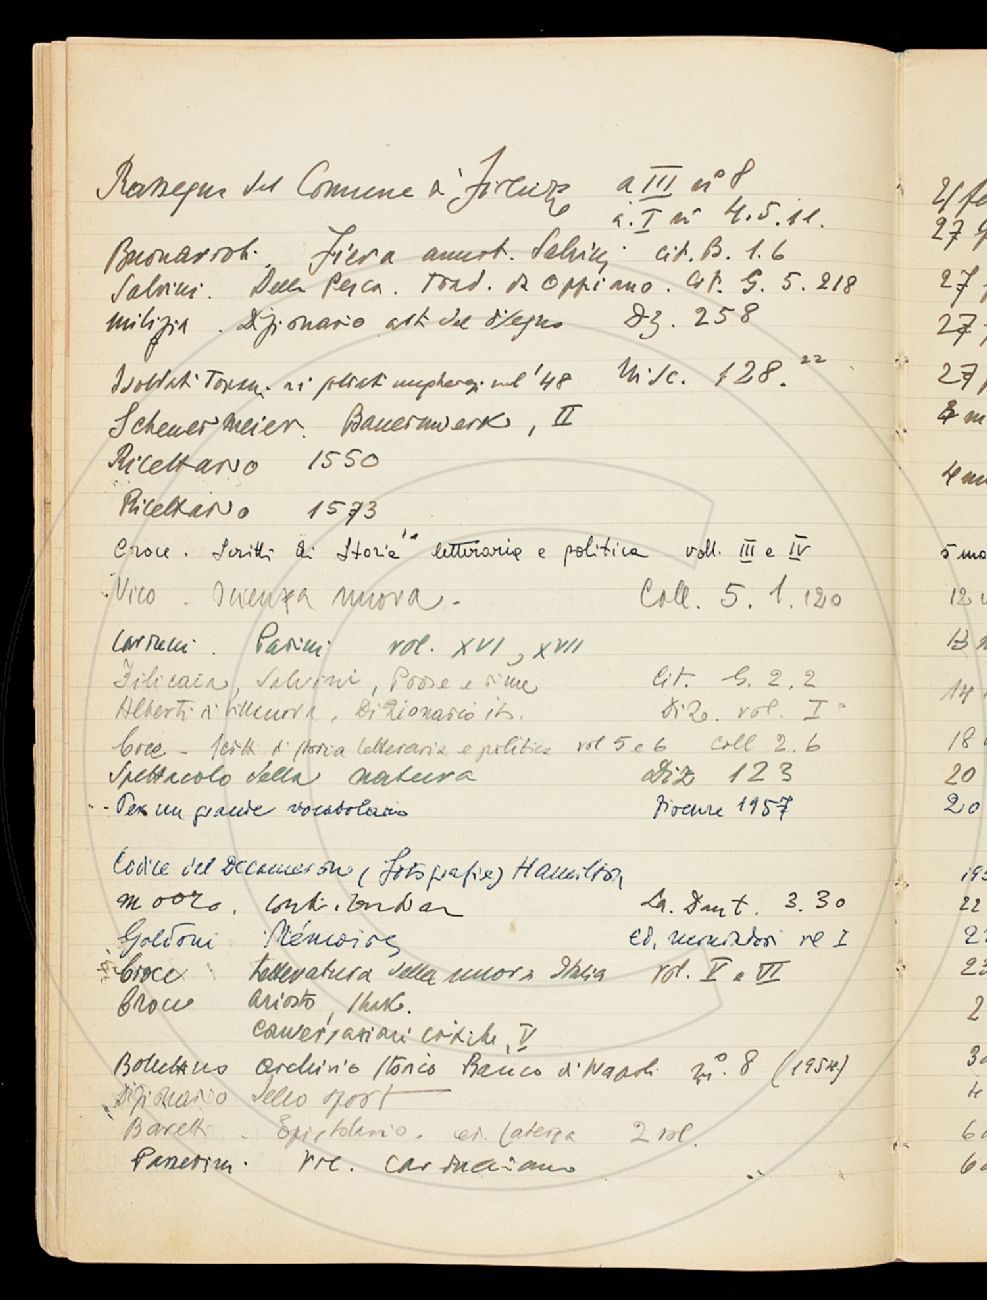 Rassegna del Comune di Firenze a III n° 8
a. I n° 4.5.11.
Buonarroti. Fiera annot. Salvini cit. B. 1.6
Salvini. Della Pesca. Trad. da Oppiano. Cit. G. 5. 218
Milizia. Dizionario arti del disegno Dz. 258
Soldati Toscani ai nel '48 Misc. 128.22
Scheuermeier. Bauernwerk, II
Ricettario 1550
Ricettario 1573
Croce. Scritti di Storia letteraria e politica voll. III e IV
Vico. Scienza nuova. Coll. 5. 1. 120
Carducci. Parini vol. XVI, XVII
Filicaia, Salvini, Prose e rime Cit. G. 2. 2
Alberti di Villenova, Dizionario it. Diz. vol. I°
Croce - Scritti di storia letteraria e politica vol 5 e 6 Coll 2.6
Spettacolo della natura Diz 123
- Per un grande vocabolario Firenze 1957
Codice del Decameron (fotografie) Hamilton
Moore. La. Dant. 3.30
Goldoni Mémoires ed. Mondadori vol I
Croce Letteratura della nuova Italia vol. V e VI
Croce Ariosto, Shak.
Conversazioni critiche, V
Bollettino Archivio Storico Banco di Napoli n° 8 (1954)
Dizionario dello sport
Baretti - Epistolario. ed. Laterza 2 vol.
Passerini. Voc. carducciano